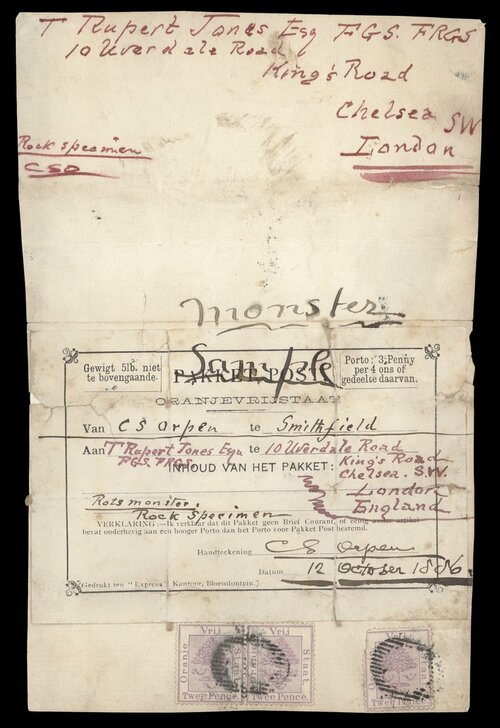 T Rupert Jones Esq FGS. FRGS
10 Uverdale Road
King's Road
Chelsea SW
London
Rock specimen
CSO
Monster
Sample
Gewigt 5lb. niet
te bovengaande.
PAKKET POST
Porto: 3 Penny
per 4 ons of
gedeelte daarvan.
ORANJEVRIJSTAAT
Van C S Orpen te Smithfield
Aan T Rupert Jones Esqu te 10 Uverdale Road
FGS. FRGS.
King's Road
INHOUD VAN HET PAKKET:
Chelsea. S.W.
London
England
Rots monster.
Rock Specimen
VERKLARING:—Ik verklaar dat dit Pakket geen Brief Courant, of eenig ander artikel
bevat onderhevig aan een hooger Porto dan het Porto voor Pakket Post bestemd.
Handteekening C S Orpen
Datum 12 October 1886.
Gedrukt ten "Express" Kantoor, Bloemfontein.]
Oranje Vrij Staat
Twee Pence.
Oranje Vrij Staat.
Twee Pence.
Oranje Vrij Staat
Twee Pence.